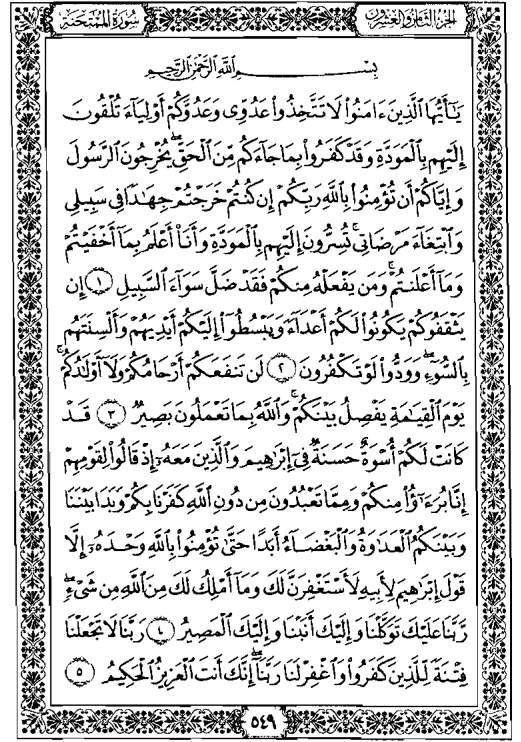 الجزء الثامن والعشرون
سورة الممتحنة
بِسْمِ ٱللَّهِ ٱلرَّحْمَٰنِ ٱلرَّحِيمِ
يَٰٓأَيُّهَا ٱلَّذِينَ ءَامَنُوا۟ لَا تَتَّخِذُوا۟ عَدُوِّى وَعَدُوَّكُمْ أَوْلِيَآءَ تُلْقُونَ
إِلَيْهِم بِٱلْمَوَدَّةِ وَقَدْ كَفَرُوا۟ بِمَا جَآءَكُم مِّنَ ٱلْحَقِّ يُخْرِجُونَ ٱلرَّسُولَ
وَإِيَّاكُمْ أَن تُؤْمِنُوا۟ بِٱللَّهِ رَبِّكُمْ إِن كُنتُمْ خَرَجْتُمْ جِهَٰدًا فِى سَبِيلِى
وَٱبْتِغَآءَ مَرْضَاتِى ۚ تُسِرُّونَ إِلَيْهِم بِٱلْمَوَدَّةِ وَأَنَا۠ أَعْلَمُ بِمَآ أَخْفَيْتُمْ
وَمَآ أَعْلَنتُمْ ۚ وَمَن يَفْعَلْهُ مِنكُمْ فَقَدْ ضَلَّ سَوَآءَ ٱلسَّبِيلِ ١ إِن
يَثْقَفُوكُمْ يَكُونُوا۟ لَكُمْ أَعْدَآءً وَيَبْسُطُوٓا۟ إِلَيْكُمْ أَيْدِيَهُمْ وَأَلْسِنَتَهُم
بِٱلسُّوٓءِ وَوَدُّوا۟ لَوْ تَكْفُرُونَ ٢ لَن تَنفَعَكُمْ أَرْحَامُكُمْ وَلَآ أَوْلَٰدُكُمْ ۚ
يَوْمَ ٱلْقِيَٰمَةِ يَفْصِلُ بَيْنَكُمْ ۚ وَٱللَّهُ بِمَا تَعْمَلُونَ بَصِيرٌ ٣ قَدْ
كَانَتْ لَكُمْ أُسْوَةٌ حَسَنَةٌ فِىٓ إِبْرَٰهِيمَ وَٱلَّذِينَ مَعَهُۥٓ إِذْ قَالُوا۟ لِقَوْمِهِمْ
إِنَّا بُرَءَٰٓؤُا۟ مِنكُمْ وَمِمَّا تَعْبُدُونَ مِن دُونِ ٱللَّهِ كَفَرْنَا بِكُمْ وَبَدَا بَيْنَنَا
وَبَيْنَكُمُ ٱلْعَدَٰوَةُ وَٱلْبَغْضَآءُ أَبَدًا حَتَّىٰ تُؤْمِنُوا۟ بِٱللَّهِ وَحْدَهُۥٓ إِلَّا
قَوْلَ إِبْرَٰهِيمَ لِأَبِيهِ لَأَسْتَغْفِرَنَّ لَكَ وَمَآ أَمْلِكُ لَكَ مِنَ ٱللَّهِ مِن شَىْءٍ ۖ
رَّبَّنَا عَلَيْكَ تَوَكَّلْنَا وَإِلَيْكَ أَنَبْنَا وَإِلَيْكَ ٱلْمَصِيرُ ٤ رَبَّنَا لَا تَجْعَلْنَا
فِتْنَةً لِّلَّذِينَ كَفَرُوا۟ وَٱغْفِرْ لَنَا رَبَّنَآ ۖ إِنَّكَ أَنتَ ٱلْعَزِيزُ ٱلْحَكِيمُ ٥
٥٤٩